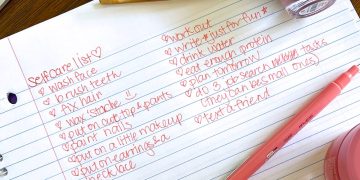 Selfcare list ♡
♡ wash face
♡ brush teeth
♡ fix hair
♡ wax 'stache !!
♡ put on cute top & pants
♡ paint nails
♡ put on a little makeup
♡ put on earrings & a
necklace
♡ workout
♡ write *just for fun*
♡ drink water
♡ eat enough protein
♡ plan tomorrow
♡ do 3 job search tasks
(they can be small ones)
♡ text a friend